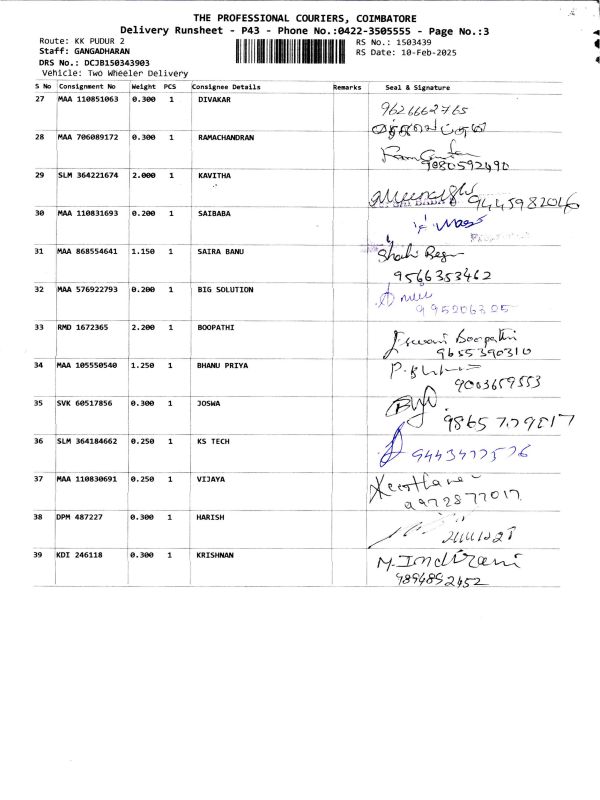 THE PROFESSIONAL COURIERS, COIMBATORE
Delivery Runsheet - P43 - Phone No.:0422-3505555 - Page No.:3
Route: KK PUDUR 2 RS No.: 1503439
Staff: GANGADHARAN RS Date: 10-Feb-2025
DRS No.: DCJB150343903
Vehicle: Two Wheeler Delivery
S No Consignment No Weight PCS Consignee Details Remarks Seal & Signature
27 MAA 110851063 0.300 1 DIVAKAR
9626662765
28 MAA 706089172 0.300 1 RAMACHANDRAN
9080592490
29 SLM 364221674 2.000 1 KAVITHA
9445982046
30 MAA 110831693 0.200 1 SAIBABA
31 MAA 868554641 1.150 1 SAIRA BANU
9566353462
32 MAA 576922793 0.200 1 BIG SOLUTION
33 RMD 1672365 2.200 1 BOOPATHI
Boopathi
9655390310
34 MAA 105550540 1.250 1 BHANU PRIYA
9003659553
35 SVK 60517856 0.300 1 JOSWA
36 SLM 364184662 0.250 1 KS TECH
37 MAA 110830691 0.250 1 VIJAYA
38 DPM 487227 0.300 1 HARISH
39 KDI 246118 0.300 1 KRISHNAN
M. Indirani
9894892452